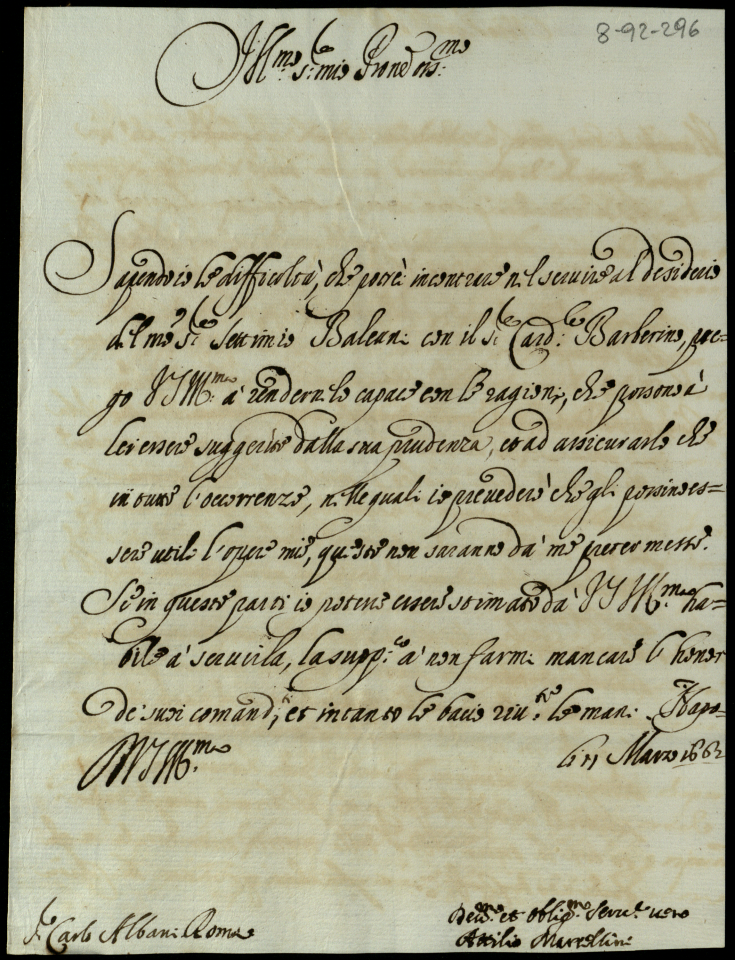 8-92-296
Ill.mo S.r mio Prone oss.mo
Sapendo io le difficoltà, che potrei incontrare nel servire al desiderio
del mo S.r Settimio Baleani con il S.r Card.le Barberino, pre-
go V S Ill.ma à renderne lo capace con le ragioni, che possono à
lei essere suggerite dalla sua prudenza, et ad assicurarlo che
in tutte l'occorrenze, nelle quali io prevederò che gli possino es-
sere utili l'opere mie, queste non saranno dà me pretermesse.
Se in queste parti io potessi essere stimato dà V S Ill.ma ha-
bile à servirla, la supp.co à non farmi mancare l'honor
de' suoi comandi, et intanto le bacio riu.te le mani. Napo-
li 11 Marzo 1662
V S Ill.ma
S.r Carlo Albani Roma
Deu.mo et oblig.mo Seru.r uero
Attilio Marcellini